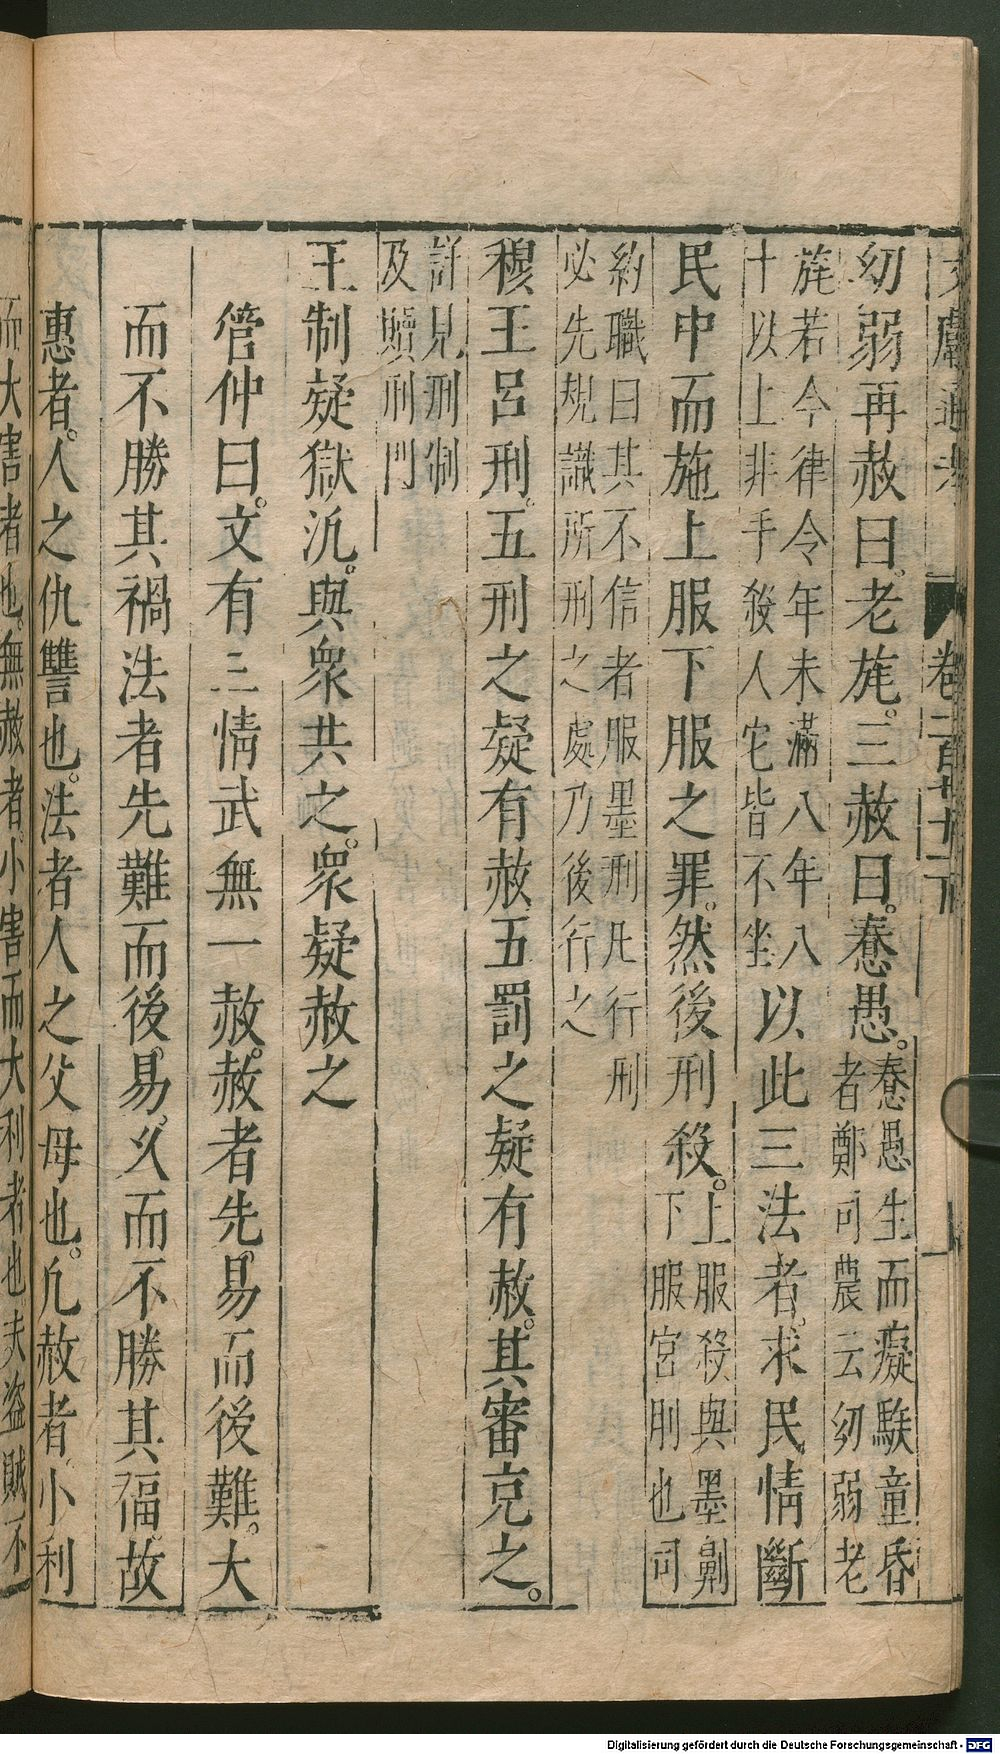 文獻通考 卷一百七十一下
幼弱再赦曰。老旄。三赦曰。惷愚。惷愚生而癡騃童昏
者鄭司農云幼弱老
旄若今律令年未滿八年八
十以上非手殺人它皆不坐以此三法者求民情斷
民中而施上服下服之罪。然後刑殺。上服殺與墨劓
下服宮刖也司
約職曰其不信者服墨刑凡行刑
必先規識所刑之處乃後行之
穆王呂刑。五刑之疑有赦五罰之疑有赦。其審克之。
詳見刑制
及贖刑門
王制疑獄汎。與衆共之。衆疑赦之
管仲曰。文有三情武無一赦。赦者先。易而後難。大
而不勝其禍法者先難而後。易。乆而不勝其福。故
惠者。人之仇讐也。法者人之父母也。凢赦者。小利
而大害者也。無赦者。小害而大利者也夫盜賊不
Digitalisierung gefördert durch die Deutsche Forschungsgemeinschaft - DFG